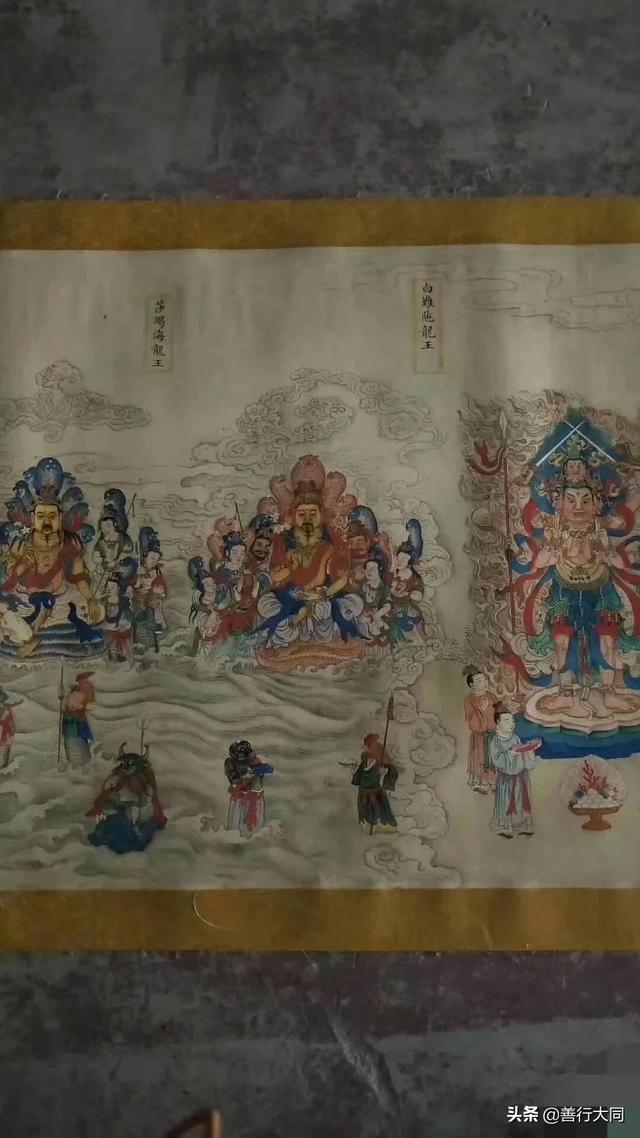 莎竭海龍王
白難陁龍王
头条 @善行大同